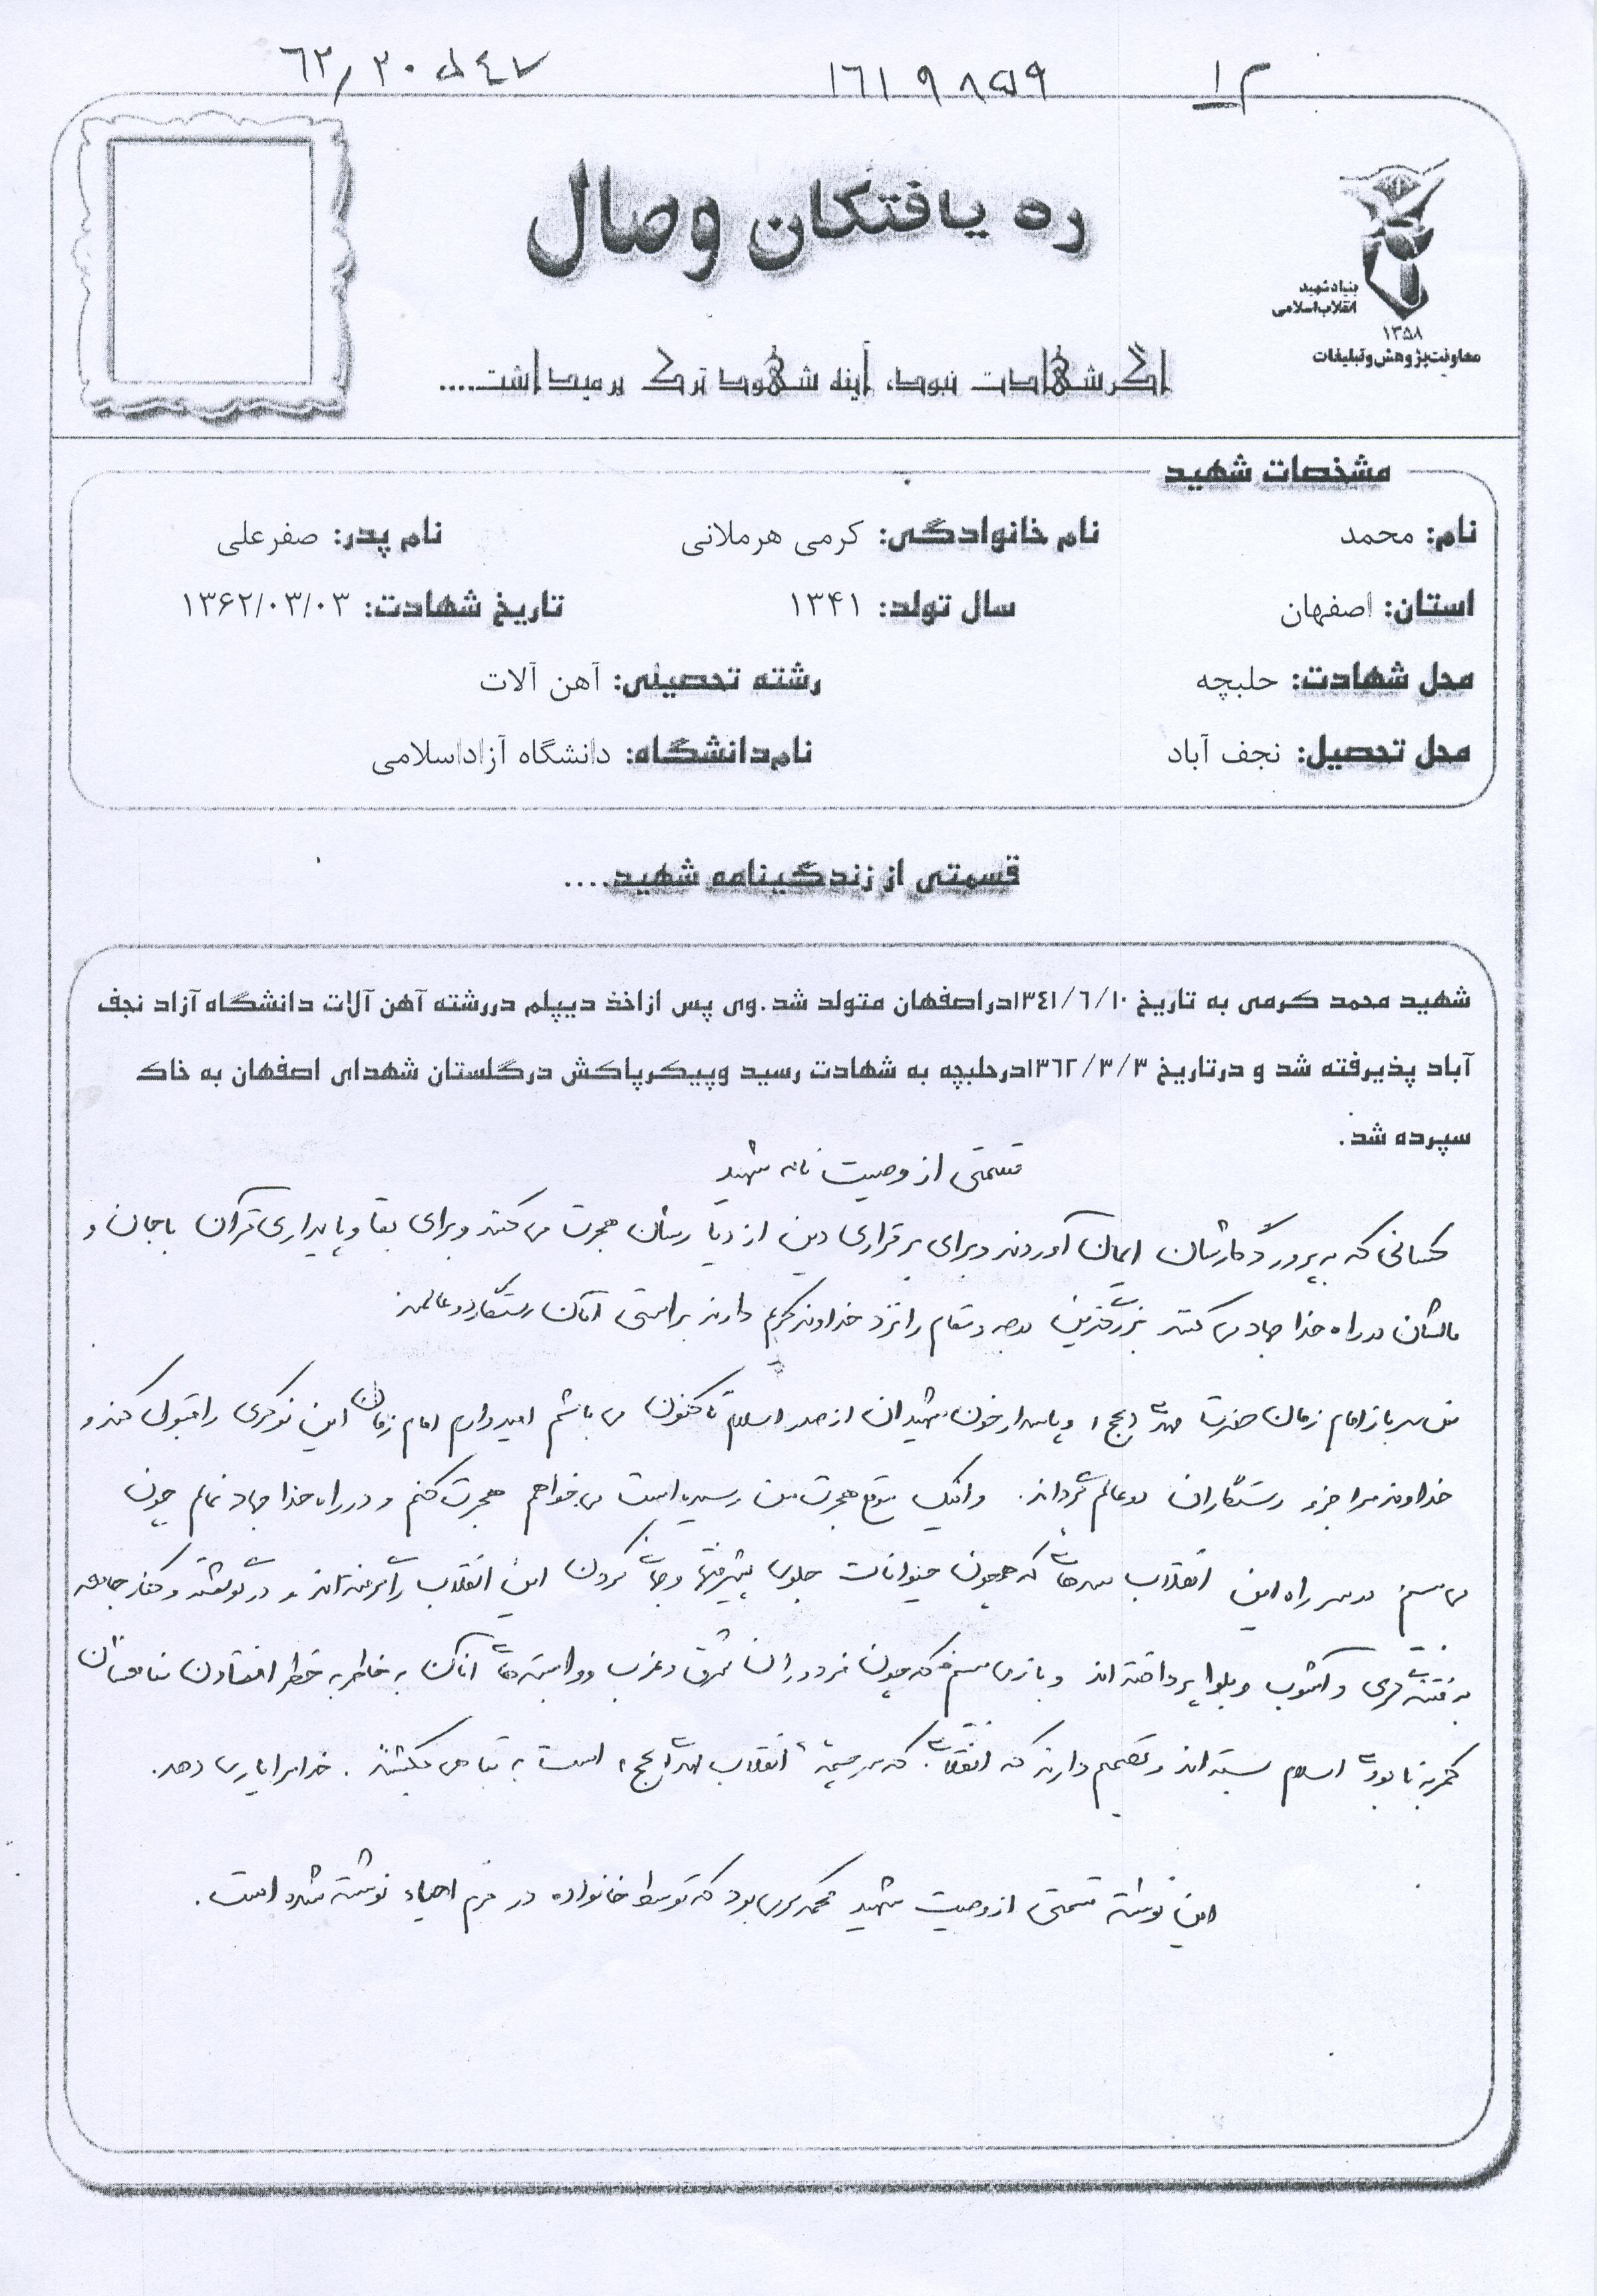 ۱۲ ۱۶۱۹۸۵۹ ۶۲/۲۰۵۴۷
ره یافتگان وصال
بنیاد شهید
انقلاب اسلامی
۱۳۵۸
معاونت پژوهش و تبلیغات
اگر شهادت نبود، آینه شهود ترک برمیداشت....
مشخصات شهید
نام: محمد نام خانوادگی: کرمی هرملانی نام پدر: صفرعلی
استان: اصفهان سال تولد: ۱۳۴۱ تاریخ شهادت: ۱۳۶۲/۰۳/۰۳
محل شهادت: حلبچه رشته تحصیلی: آهن آلات
محل تحصیل: نجف آباد نام دانشگاه: دانشگاه آزاداسلامی
قسمتی از زندگینامه شهید....
شهید محمد کرمی به تاریخ ۱۳٤۱/۶/۱۰دراصفهان متولد شد.وی پس ازاخذ دیپلم دررشته آهن آلات دانشگاه آزاد نجف
آباد پذیرفته شد و درتاریخ ۱۳۶۲/۳/۳درحلبچه به شهادت رسید وپیکرپاکش درگلستان شهدای اصفهان به خاک
سپرده شد.
قسمتی از وصیت نامه شهید
کسانی که به پروردگارشان ایمان آوردند و برای برقراری دین از دیارشان هجرت می کنند و برای بقا و پایداری قرآن با جان و
مالشان در راه خدا جهاد می کنند بزرگترین درجه و مقام را نزد خداوند کریم دارند براستی آنان رستگار دو عالمند
من سرباز امام زمان حضرت مهدی (عج) و پاسدار خون شهیدان از صدر اسلام تاکنون می باشم امیدوارم امام زمان این نوکری را قبول کند و
خداوند مرا جزو رستگاران دو عالم گرداند. و اینک موقع هجرت من رسیده است می خواهم هجرت کنم و در راه خدا جهاد نمایم چون
می بینم در سر راه این انقلاب سدهائی که همچون حیوانات جلوی پیشرفتها و جهانی کردن این انقلاب را گرفته اند و در توطئه و کنار جامعه
به فتنه گری و آشوب و بلوا پرداخته اند و باز می بینم که چون مزدوران شرق و غرب و وابسته های آنان به خاطر به خطر افتادن منافعشان
کمر به نابودی اسلام بسته اند و تصمیم دارند که انقلابی که سرچشمه انقلاب مهدی (عج) است به تباهی بکشند. خدا مرا یاری دهد.
این نوشته قسمتی از وصیت شهید محمد کرمی بود که توسط خانواده در فرم احیاء نوشته شده است.